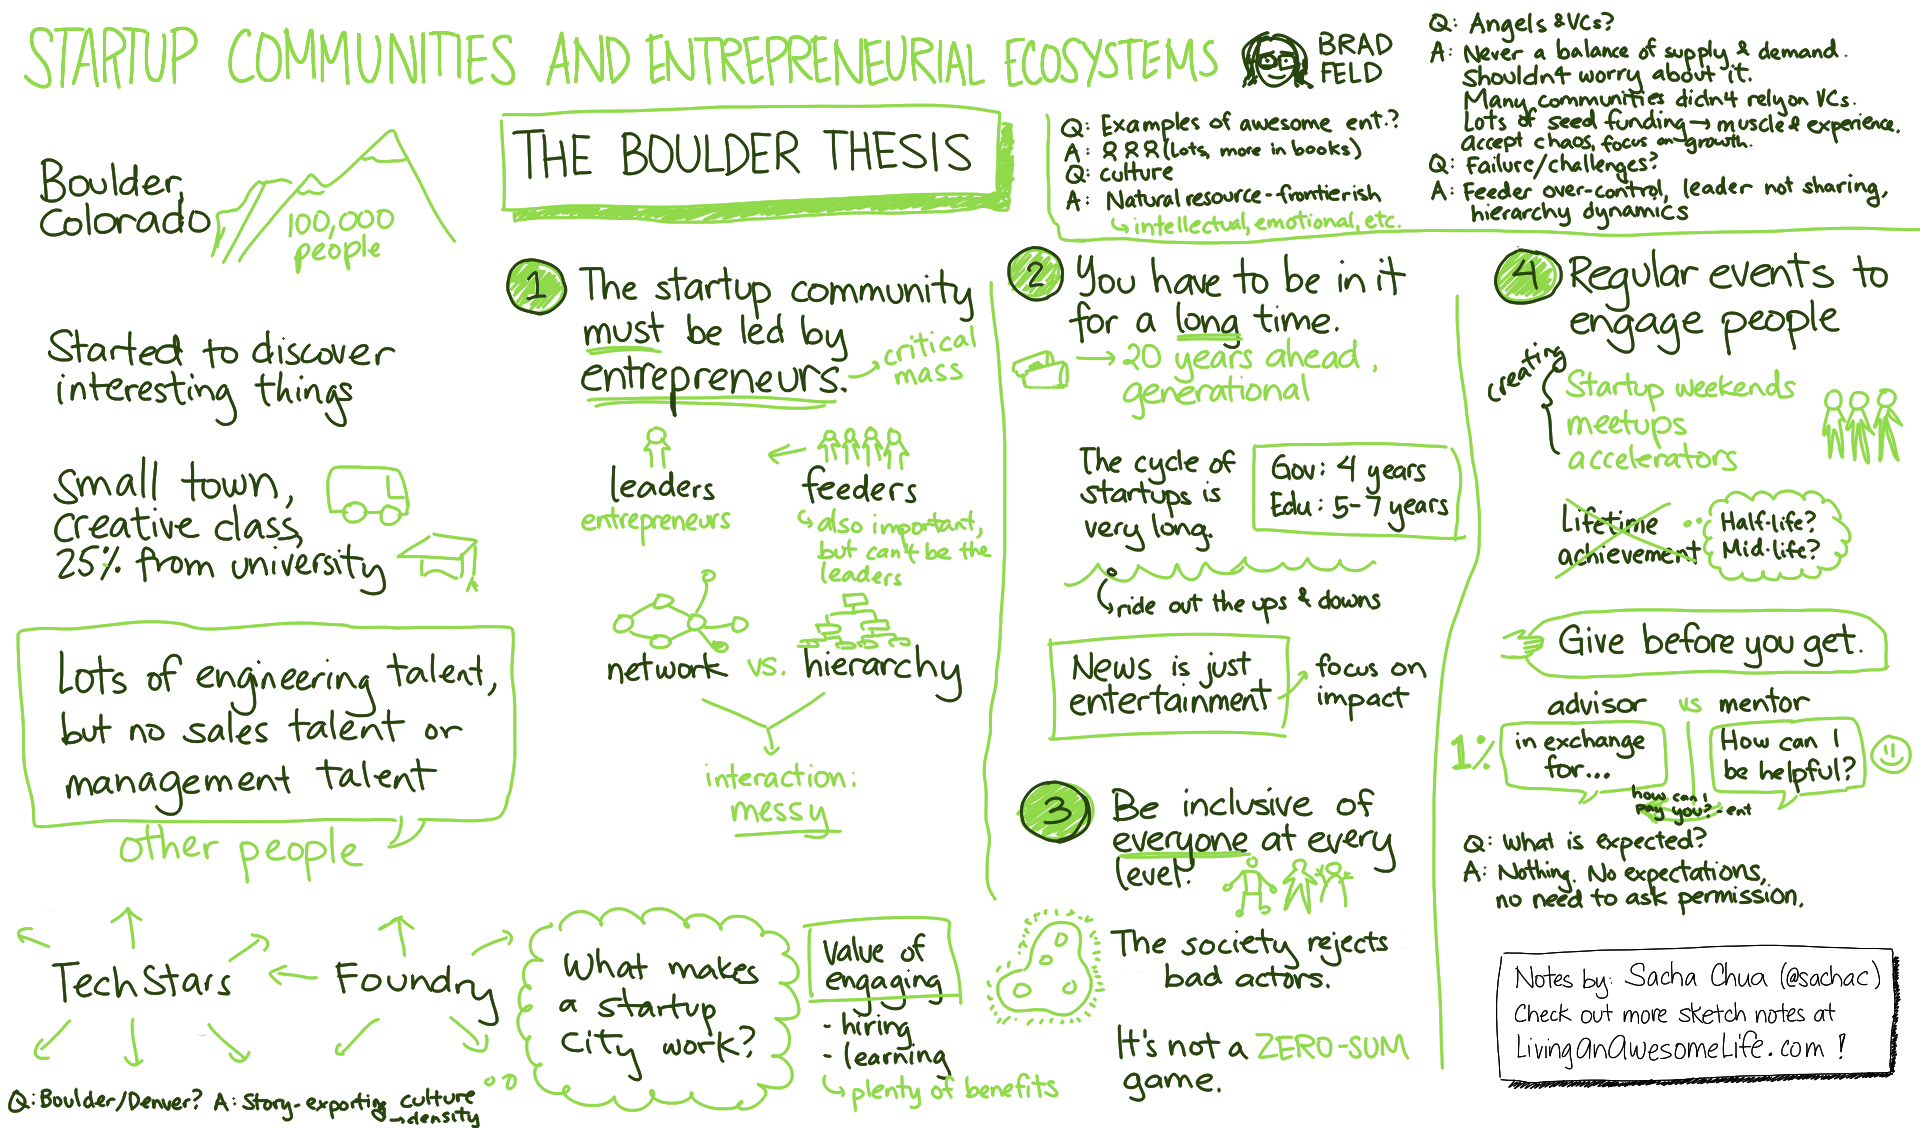 STARTUP COMMUNITIES AND ENTREPRENEURIAL ECOSYSTEMS
BRAD
FELD
THE BOULDER THESIS
Boulder,
Colorado
100,000
people
Started to discover
interesting things
Small town,
creative class,
25% from university
Lots of engineering talent,
but no sales talent or
management talent
other people
TechStars
Foundry
Q: Boulder/Denver? A: Story-exporting culture
→density
What makes
a startup
city work?
Value of
engaging
- hiring
- learning
plenty of benefits
1 The startup community
must be led by
entrepreneurs.
critical
mass
leaders
entrepreneurs
feeders
also important,
but can't be the
leaders
network vs. hierarchy
interaction:
messy
Q: Examples of awesome ent.?
A: (Lots, more in books)
Q: culture
A: Natural resource-frontierish
intellectual, emotional, etc.
Q: Angels & VCs?
A: Never a balance of supply & demand.
Shouldn't worry about it.
Many communities didn't rely on VCs.
Lots of seed funding → muscle & experience.
accept chaos, focus on growth.
Q: Failure/challenges?
A: Feeder over-control, leader not sharing,
hierarchy dynamics
2 You have to be in it
for a long time.
20 years ahead,
generational
The cycle of
startups is
very long.
Gov: 4 years
Edu: 5-7 years
ride out the ups & downs
News is just
entertainment
focus on
impact
3 Be inclusive of
everyone at every
level.
The society rejects
bad actors.
It's not a ZERO-SUM
game.
4 Regular events to
engage people
creating
Startup weekends
meetups
accelerators
Lifetime
achievement
Half-life?
Mid-life?
Give before you get.
advisor vs mentor
1%
in exchange
for...
How can I
be helpful?
how can I
pay you? - ent
Q: What is expected?
A: Nothing. No expectations,
no need to ask permission.
Notes by: Sacha Chua (@sachac)
Check out more sketch notes at
LivingAnAwesomeLife.com !